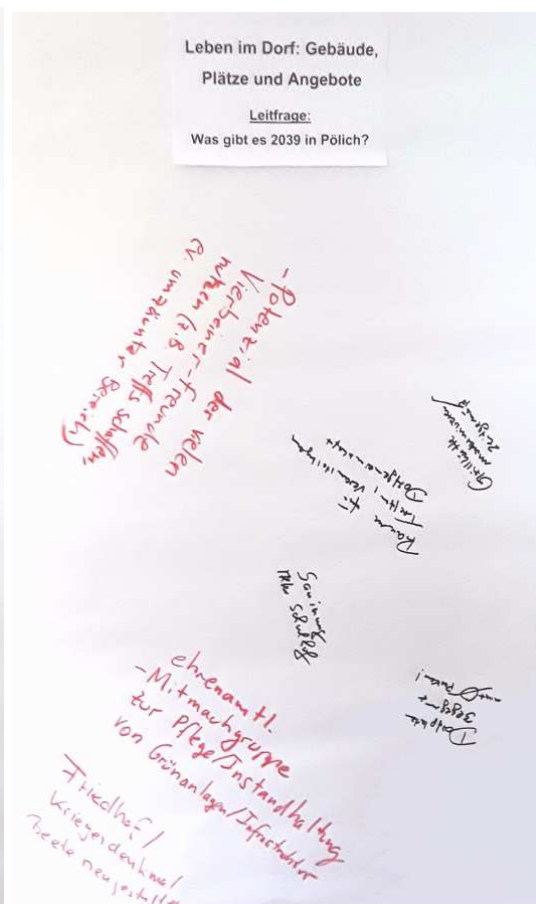 Leben im Dorf: Gebäude,
Plätze und Angebote
Leitfrage:
Was gibt es 2039 in Pölich?
-Potenzial der vielen
Vierbeiner-Freunde
nutzen (z.B. Treffs schaffen,
ev. umzäunter Bereich)
Grillhütte
modernisieren
zeitgemäß
Räume für
Treffen / Veranstaltungen
Dorfgemeinschaft
Sanierung
alter Schulhof
Dorfplatz
ehrenamtl.
-Mitmachgruppe
zur Pflege/Instandhaltung
von Grünanlagen/Infrastruktur
Friedhof/
Kriegerdenkmal
Beete neugestalten